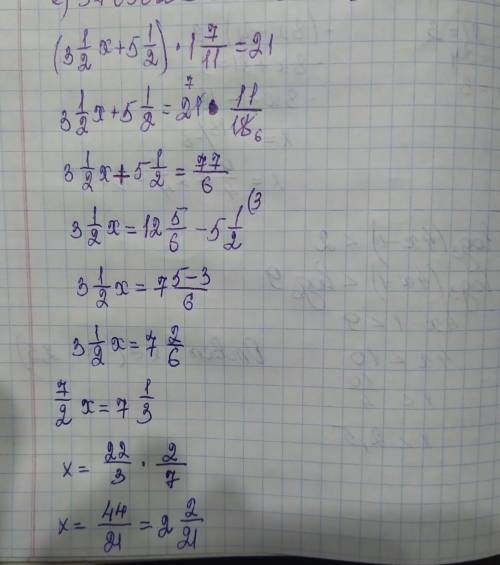 (3 1/2 x + 5 1/2) · 1 7/11 = 21
3 1/2 x + 5 1/2 = 21 7 · 11/18 6
3 1/2 x + 5 1/2 = 77/6
3 1/2 x = 12 5/6 - 5 1/2 (3
3 1/2 x = 7 5-3/6
3 1/2 x = 7 2/6
7/2 x = 7 1/3
x = 22/3 · 2/7
x = 44/21 = 2 2/21